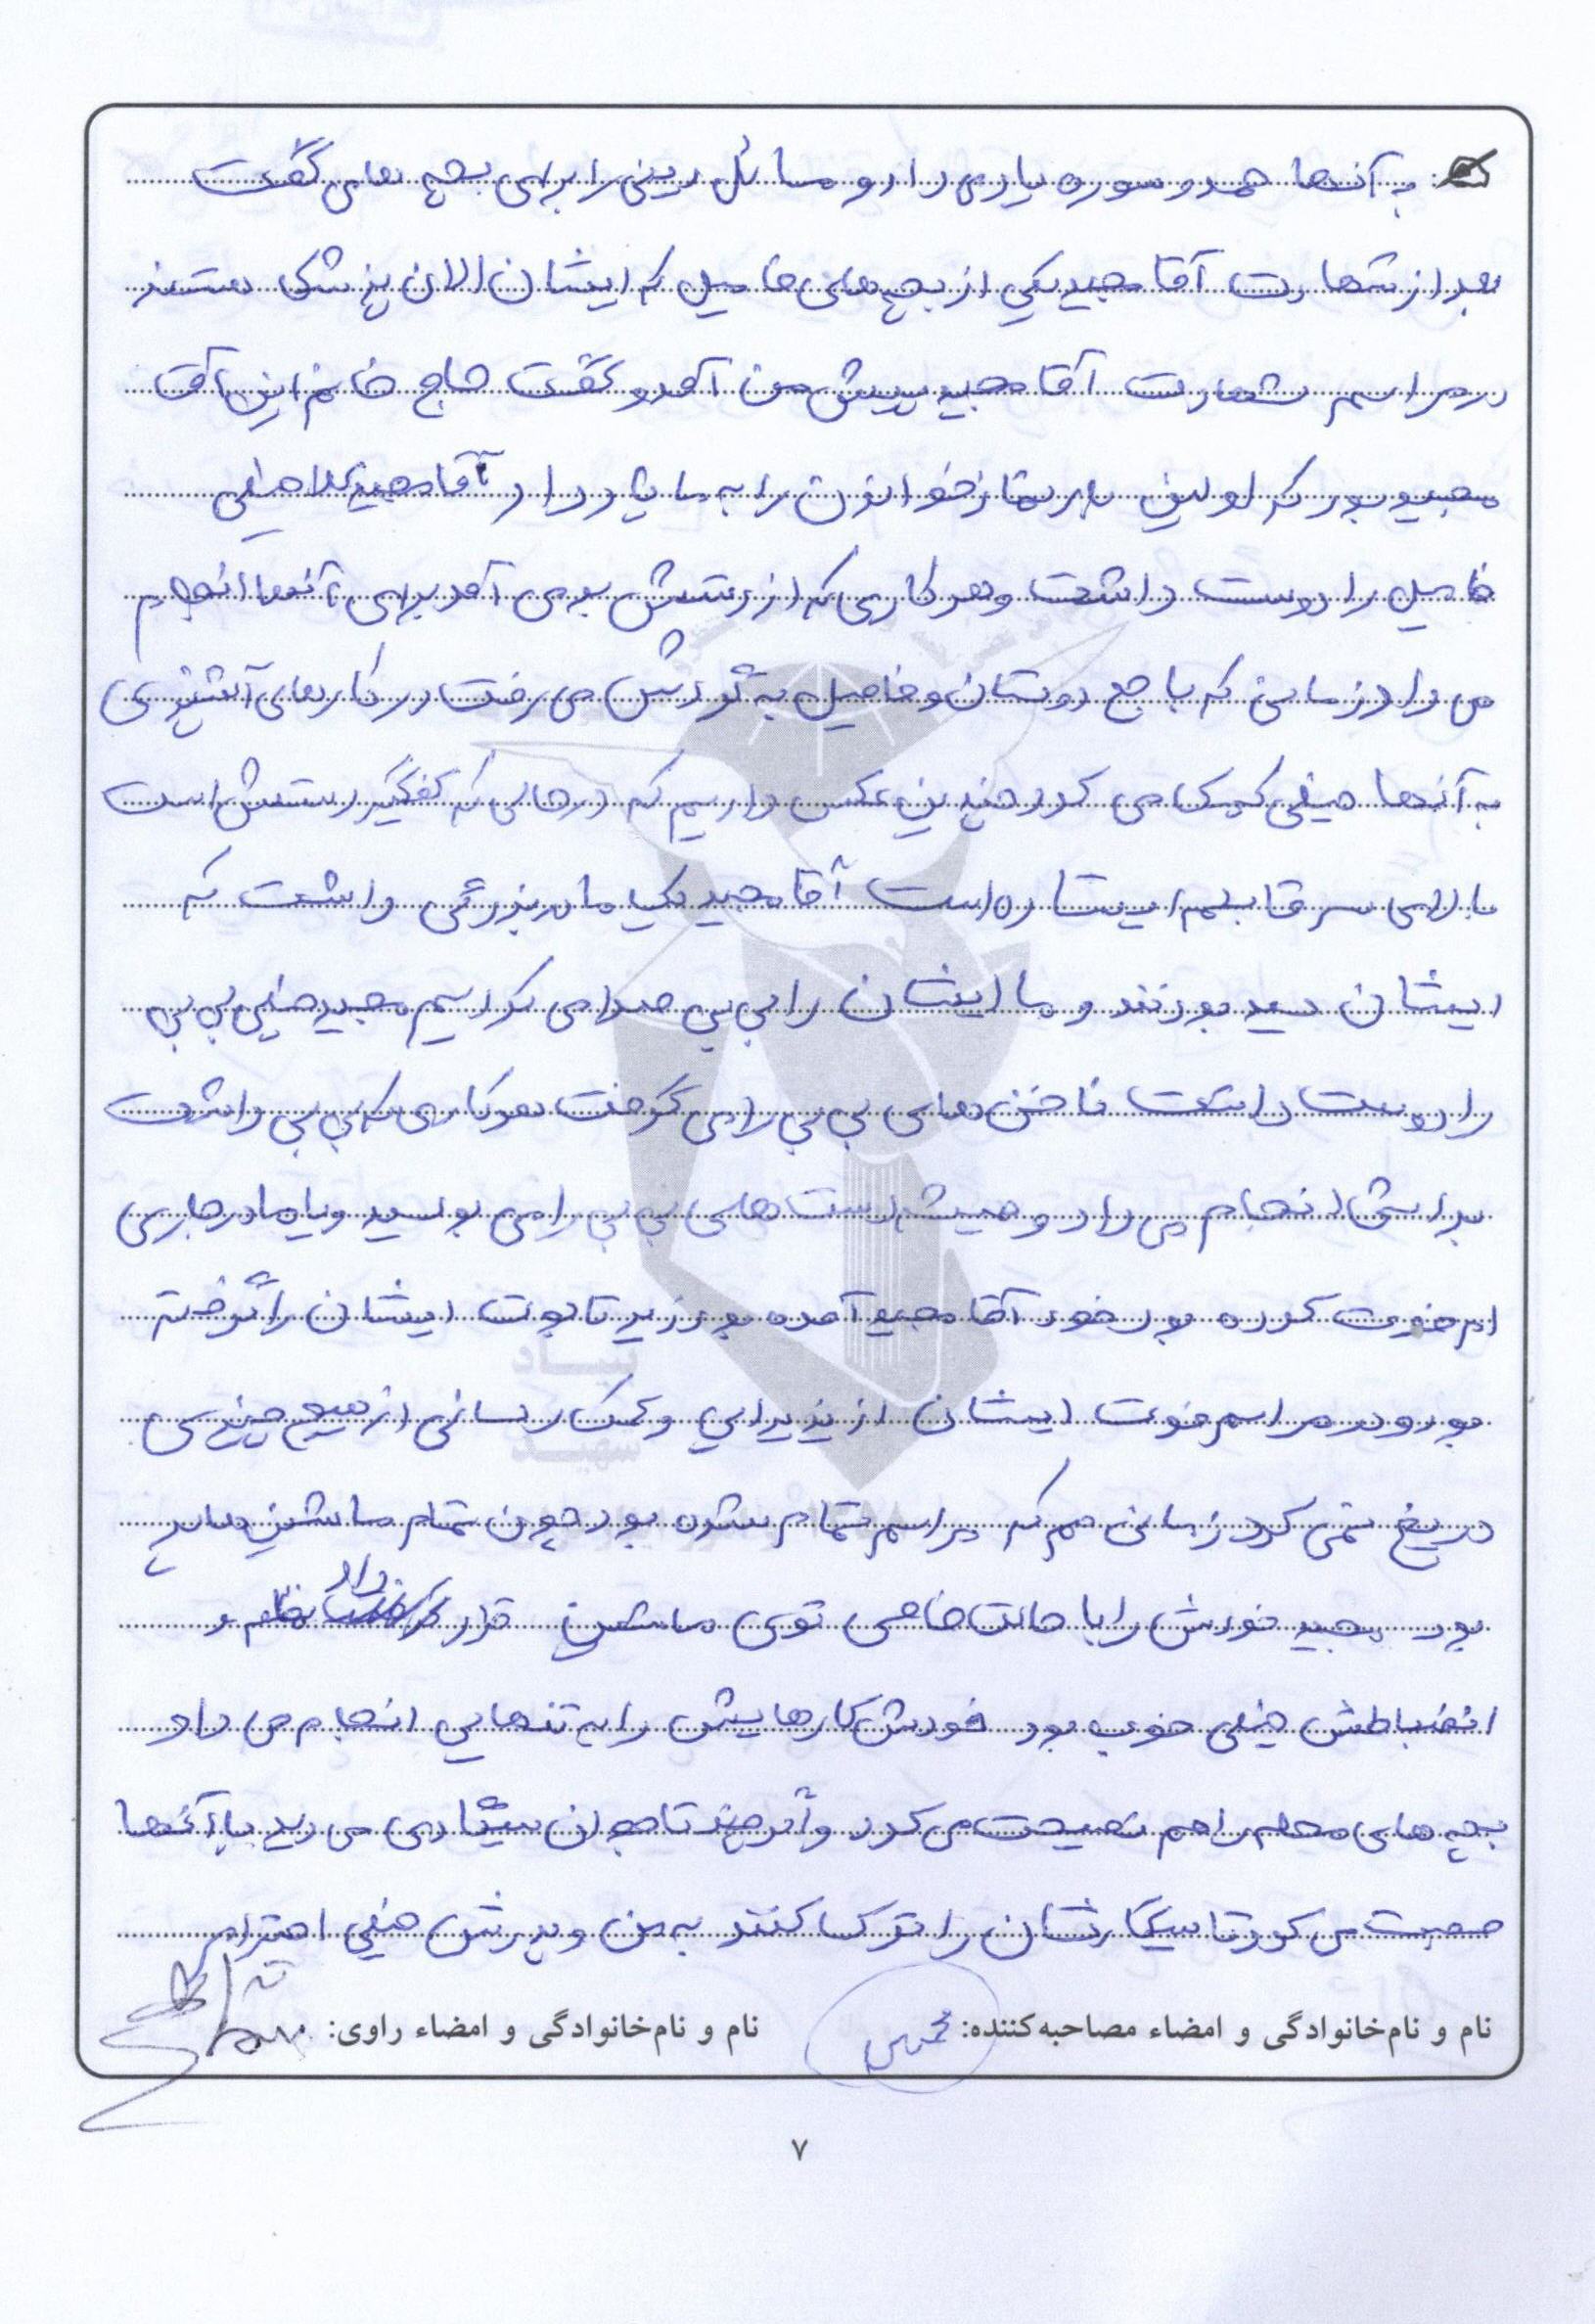 به آنها حمد و سوره یاد می داد و مسائل دینی را برای بچه ها می گفت
بعد از شهادت آقا مجید یکی از بچه های فامیل که ایشان الان پزشک هستند
در مراسم شهادت آقا مجید پیش من آمد و گفت حاج خانم این آقا
مجید بود که اولین بار نماز خواندن را به ما یاد داد آقا مجید خیلی
فامیل را دوست داشت و هر کاری که از دستش بر می آمد برای آنها انجام
می داد زمانی که با جمع دوستان و فامیل به گردش می رفت در کارهای آشپزی
به آنها خیلی کمک می کرد چندین عکس داریم که در حالی که کفگیر دستش است
بالای سر قابلمه ایستاده است آقا مجید یک مادربزرگی داشت که
ایشان سید بودند و ما ایشان را بی بی صدا می کردیم مجید خیلی بی بی
را دوست داشت ناخن های بی بی را می گرفت هر کاری که بی بی داشت
برایش انجام می داد و همیشه دست های بی بی را می بوسید و یا مادر جاری
ام فوت کرده بود خود آقا مجید آمده بود زیر تابوت ایشان را گرفته
بود و در مراسم فوت ایشان از پذیرایی و کمک رسانی از هیچ چیزی
دریغ نمی کرد زمانی هم که مراسم تمام شده بود چون تمام ماشین ها پر
بود مجید خودش را با حالت خاصی توی ماشین قرار داد نظم و
انضباطش خیلی خوب بود خودش کارهایش را به تنهایی انجام می داد
بچه های محله را هم نصیحت می کرد و اگر چند تا جوان سیگاری می دید با آنها
صحبت می کرد تا سیگارشان را ترک کنند به من و پدرش خیلی احترام
نام و نام‌خانوادگی و امضاء مصاحبه‌کننده: نام و نام‌خانوادگی و امضاء راوی:
۷